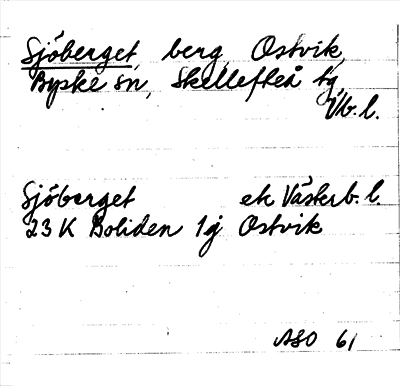 Sjöberget, berg, Ostvik,
Byske sn, Skellefteå tg,
Vb. l.
Sjöberget ek Västerb. l.
23 K Boliden 1g Ostvik
ASO 61